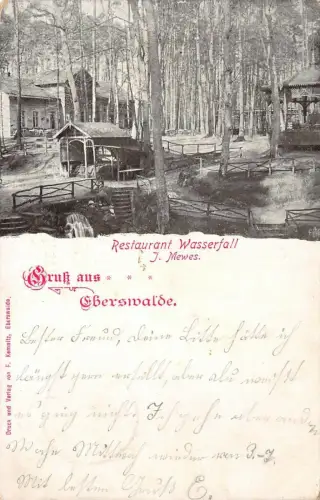 Restaurant Wasserfall
J. Mewes.
Gruß aus
Eberswalde.
Druck und Verlag von F. Kemnitz, Eberswalde.
Bester Freund, deine Bitte hätte ich
längst gern erfüllt, aber du weißt
es ging nicht. Ich gehe aber
Woche Mittwoch wieder von 3-7
Mit besten Gruß E.